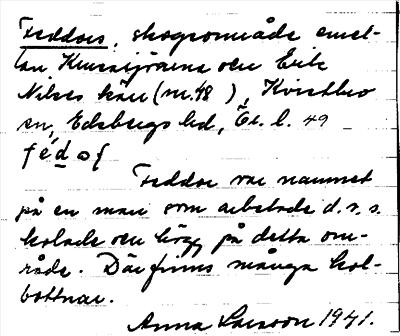 Feddos, skogsområde emel-
lan Kvissjöarna och Erik
Nilses kärr (nr. 48 ), Kvistbro
sn, Edsbergs hd, Ör. l. 49
fédos
Feddos var namnet
på en man som arbetade d. v. s.
kolade och högg på detta om-
råde. Där finns många kol-
bottnar.
Anna Larsson 1941.